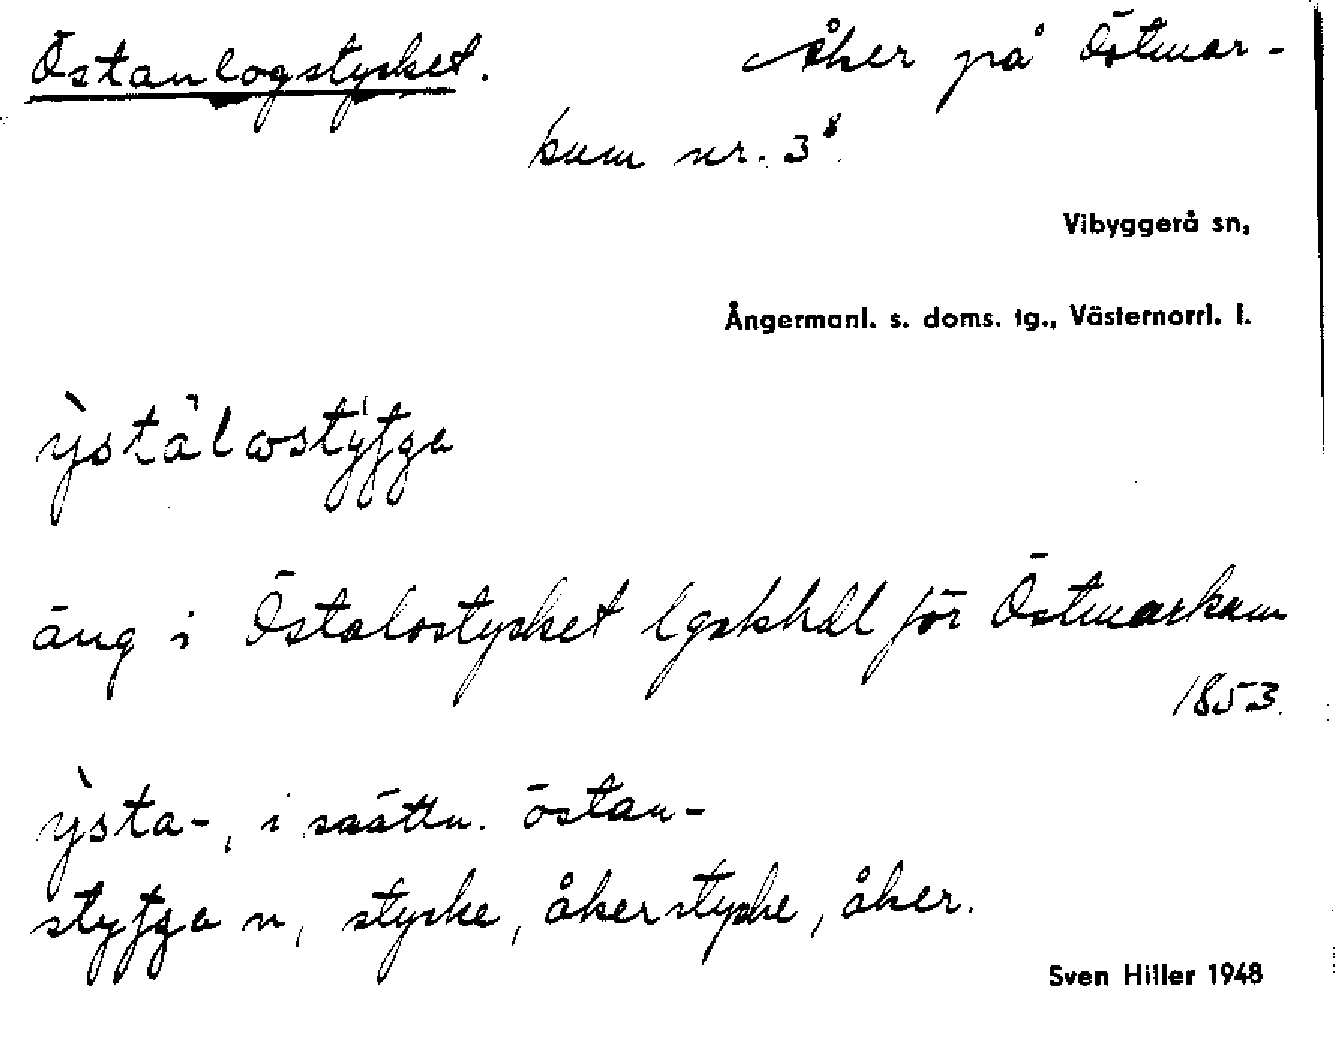 Östanlogstycket. Åker på Östmar-
kum nr. 3⁸.
Vibyggerå sn,
Ångermanl. s. doms. tg., Västernorrl. l.
äng i Östalostycket lgskhdl för Östmarkum
1853.
ỳsta-, i saättn. östan-
n, stycke, åkerstycke, åker.
Sven Hiller 1948